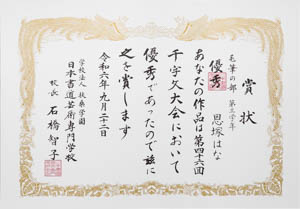 賞状
毛筆の部 第三学年
優秀
恩塚はな
あなたの作品は第四十六回
千字文大会において
優秀であったので茲に
之を賞します
令和六年九月二十二日
学校法人 扶桑学園
日本書道芸術専門学校
校長 石橋智子